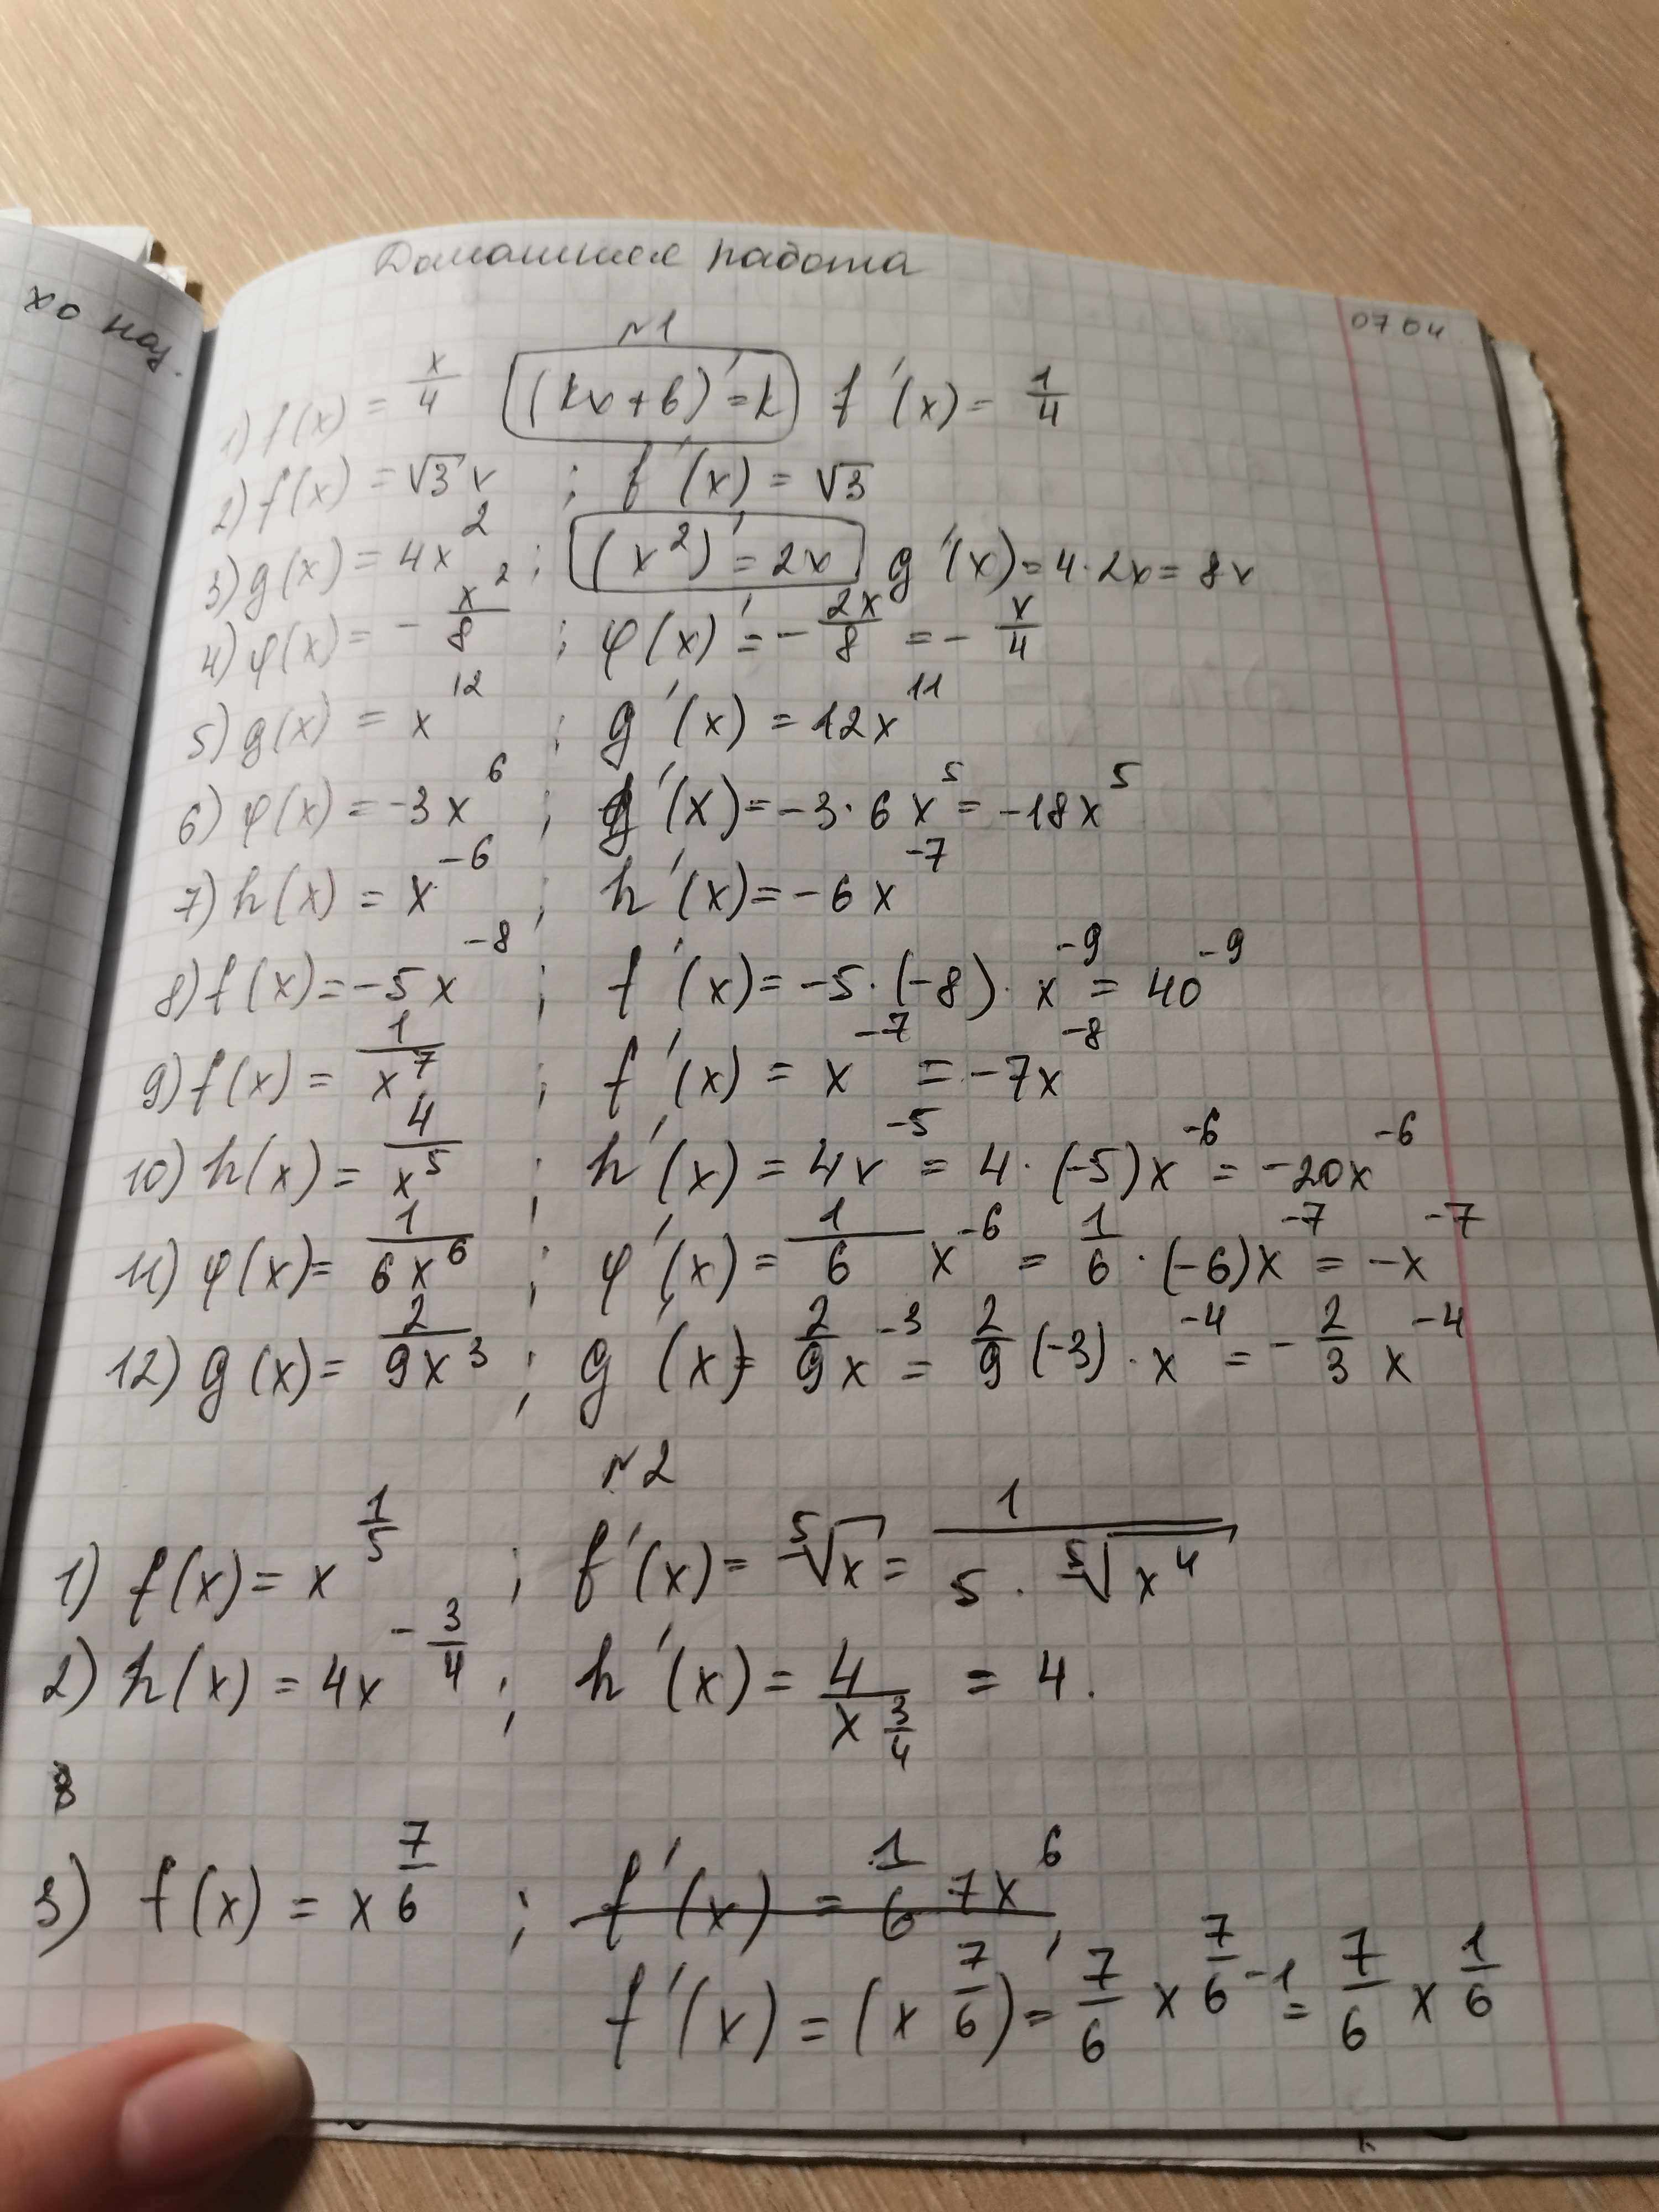 хо поз.
Домашнее работа
07 04
N1
1) f(x) = x/4 (kx+b)'=k f'(x)= 1/4
2) f(x) = √3 x ; f'(x) = √3
3) g(x) = 4x² ; (x²)'=2x g'(x)=4·2x= 8x
4) φ(x) = - x²/8 ; φ(x)'= - 2x/8 = - x/4
5) g(x) = x¹² ; g'(x) = 12x¹¹
6) φ(x) = -3x⁶ ; g'(x)= -3·6x⁵ = -18x⁵
7) h(x) = x⁻⁶ ; h'(x)= -6x⁻⁷
8) f(x)= -5x⁻⁸ ; f'(x)= -5·(-8)·x⁻⁹ = 40⁻⁹
9) f(x) = 1/x⁷ ; f'(x) = x⁻⁷ = -7x⁻⁸
10) h(x) = 4/x⁵ ; h'(x) = 4x⁻⁵ = 4·(-5)x⁻⁶ = -20x⁻⁶
11) φ(x)= 1/6x⁶ ; φ'(x) = 1/6 x⁻⁶ = 1/6·(-6)x⁻⁷ = -x⁻⁷
12) g(x)= 2/9x³ ; g'(x)= 2/9 x⁻³ = 2/9 (-3)·x⁻⁴ = - 2/3 x⁻⁴
N2
1) f(x)= x^(1/5) ; f'(x)= ⁵√x = 1/(5·⁵√x⁴)
2) h(x) = 4x^(-3/4) ; h'(x) = 4/x^(3/4) = 4.
3) f(x) = x^(7/6) ; f'(x) = 1/6 7x⁶
f'(x) = (x^(7/6))' = 7/6 x^(7/6 -1) = 7/6 x^(1/6)